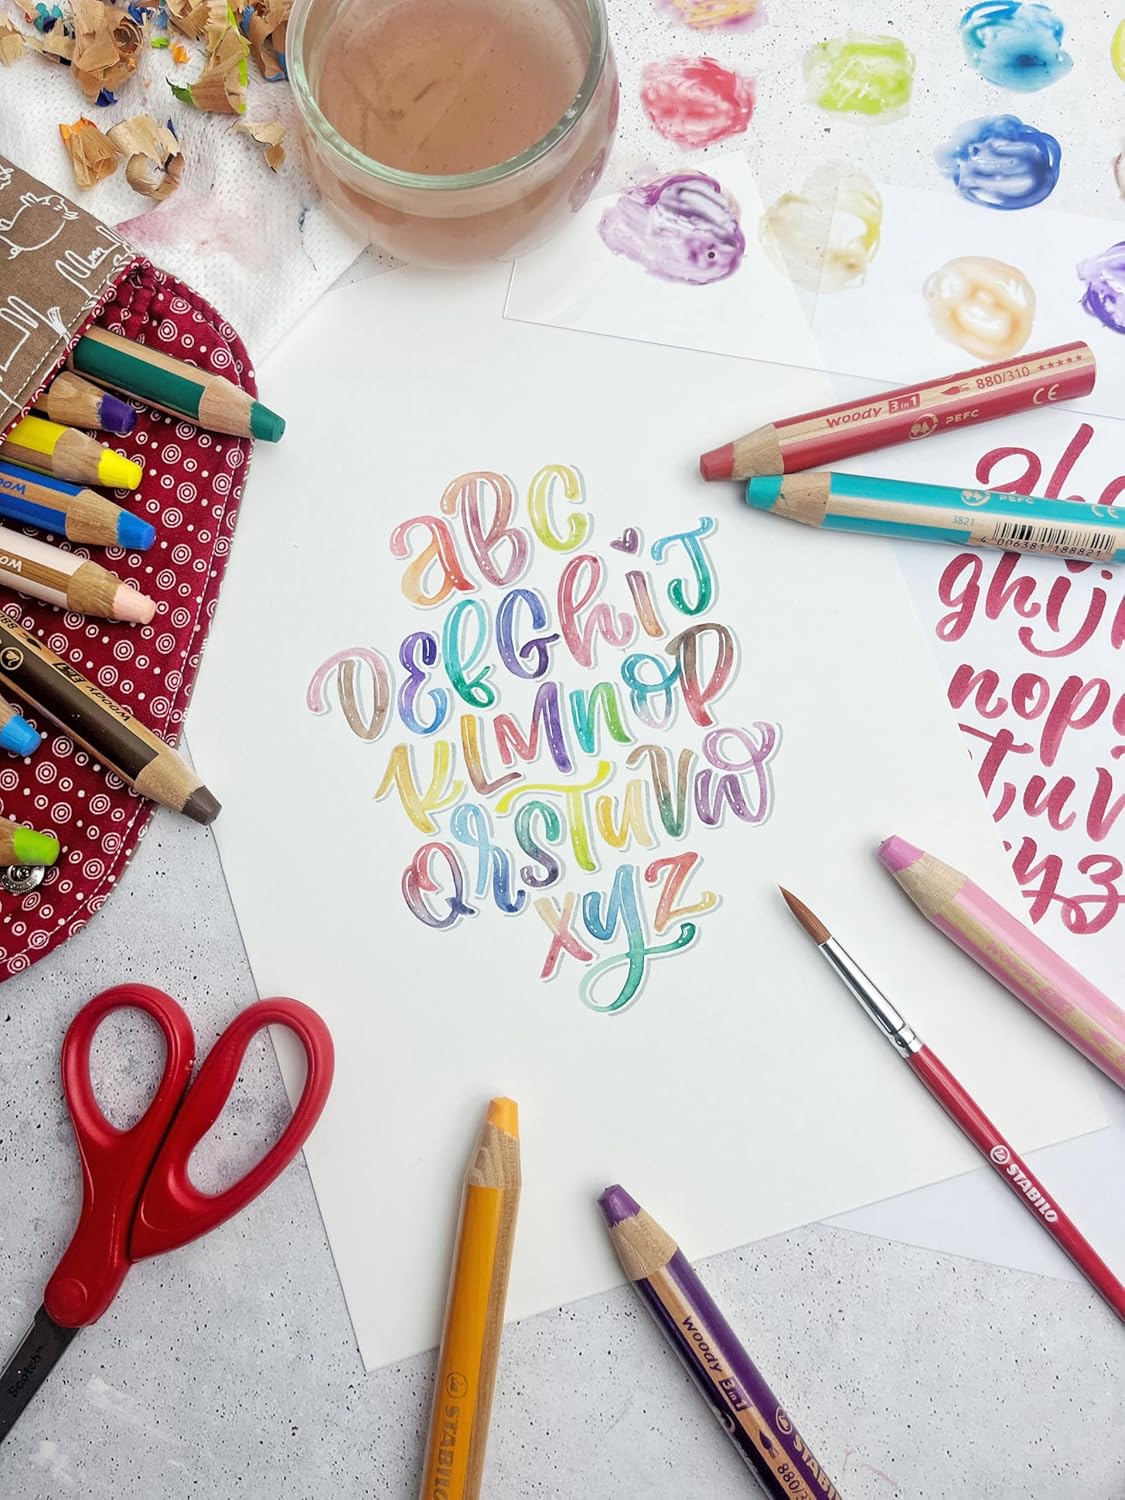 woody 3 in 1 880/310 *****
PEFC CE
PEFC CE
3821
4 006381 188821
aBC
DEfGhiJ
KLMNOP
QRSTUVW
xyz
ghij
nop
tuv
yz
woody
STABILO
STABILO
woody 3 in 1
STABILO
880/3
Scotch